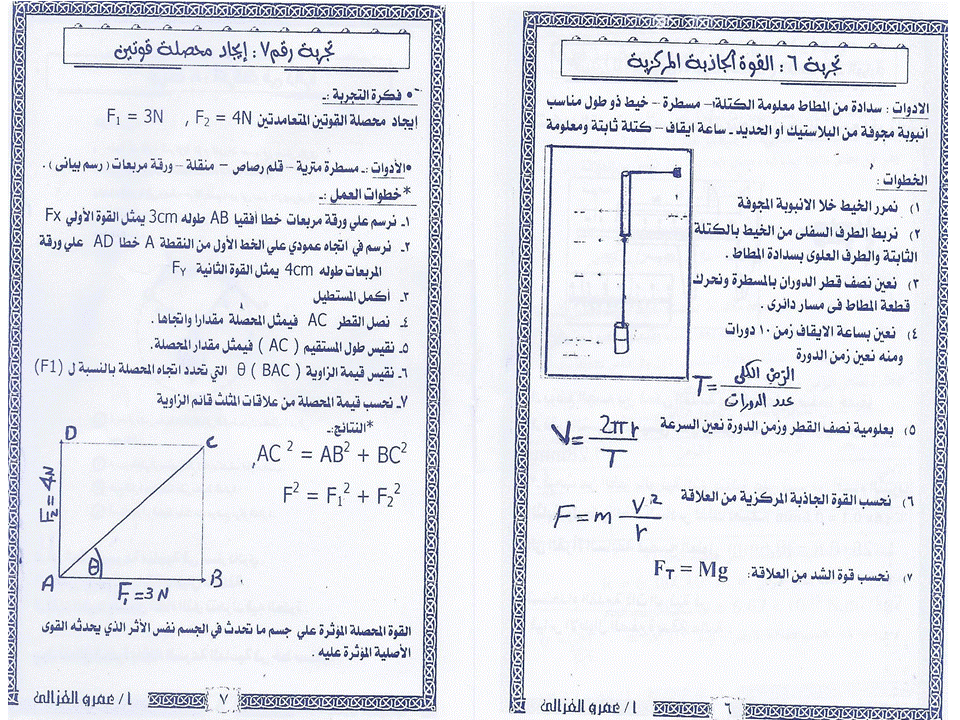 تجربة ٦ : القوة الجاذبة المركزية
الادوات : سدادة من المطاط معلومة الكتلة – مسطرة – خيط ذو طول مناسب
انبوبة مجوفة من البلاستيك او الحديد – ساعة ايقاف – كتلة ثابتة ومعلومة
الخطوات :
١) نمرر الخيط خلا الانبوبة المجوفة
٢) نربط الطرف السفلى من الخيط بالكتلة
الثابتة والطرف العلوى بسدادة المطاط .
٣) نعين نصف قطر الدوران بالمسطرة ونحرك
قطعة المطاط فى مسار دائرى .
٤) نعين بساعة الايقاف زمن ١٠ دورات
ومنه نعين زمن الدورة
T = الزمن الكلى / عدد الدورات
٥) بمعلومية نصف القطر وزمن الدورة نعين السرعة
V = 2πr / T
٦) نحسب القوة الجاذبة المركزية من العلاقة
F = m v² / r
٧) نحسب قوة الشد من العلاقة: F_T = Mg
٦
أ/ عمرو الغزالى
تجربة رقم ٧ : إيجاد محصلة قوتين
• فكرة التجربة :ـ
إيجاد محصلة القوتين المتعامدتين F₁ = 3N , F₂ = 4N
•الأدوات :ـ مسطرة مترية – قلم رصاص – منقلة – ورقة مربعات ( رسم بيانى ) .
*خطوات العمل :ـ
١ـ نرسم علي ورقة مربعات خطا أفقيا AB طوله 3cm يمثل القوة الأولي FX
٢ـ نرسم في اتجاه عمودي علي الخط الأول من النقطة A خطا AD علي ورقة
المربعات طوله 4cm يمثل القوة الثانية F_Y
٣ـ أكمل المستطيل
٤ـ نصل القطر AC فيمثل المحصلة مقدارا واتجاها .
٥ـ نقيس طول المستقيم ( AC ) فيمثل مقدار المحصلة.
٦ـ نقيس قيمة الزاوية θ ( BAC ) التي تحدد اتجاه المحصلة بالنسبة ل (F1)
٧ـ نحسب قيمة المحصلة من علاقات المثلث قائم الزاوية
*النتائج:ـ
AC² = AB² + BC²
F² = F₁² + F₂²
D
C
F₂ = 4N
θ
A
B
F = 3N
القوة المحصلة المؤثرة علي جسم ما تحدث في الجسم نفس الأثر الذي يحدثه القوى
الأصلية المؤثرة عليه .
٧
أ/ عمرو الغزالى